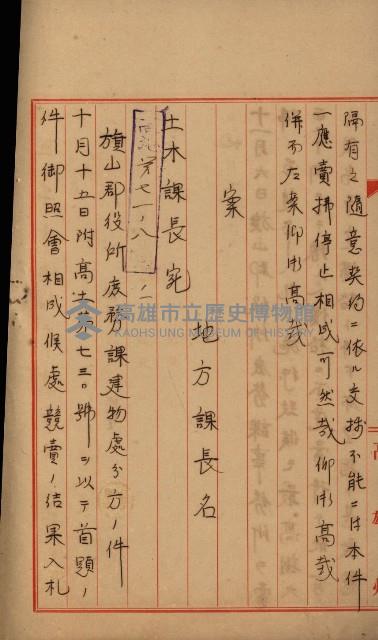 隔有之随意契約ニ依ル交捗不能ニ付本件
一應賣拂停止相成可然哉仰御高裁
併而左案仰御高裁
案
土木課長宛 地方課長名
高第七一八
旗山郡役所庶務課建物處分方ノ件
十月十五日附高法第七三〇號ヲ以テ首題ノ
件御照會相成候處競賣ノ結果入札
高雄市立歷史博物館
KAOHSIUNG MUSEUM OF HISTORY
高雄州